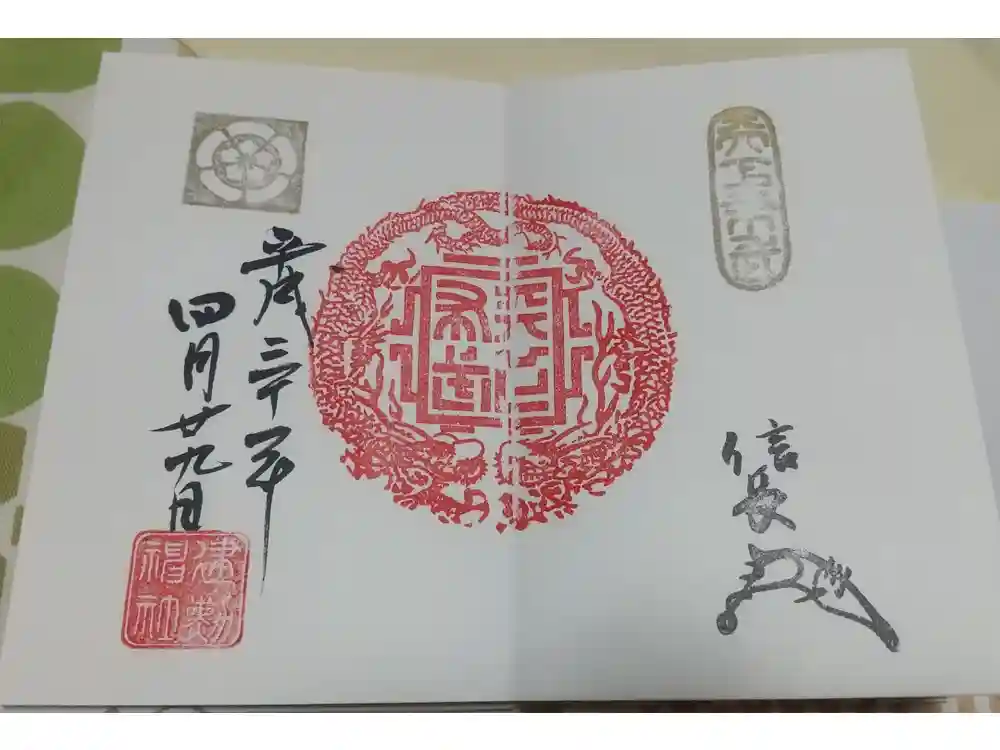 天下布武
信長
天下
布武
歳三十年
四月廿九日
建勲
神社